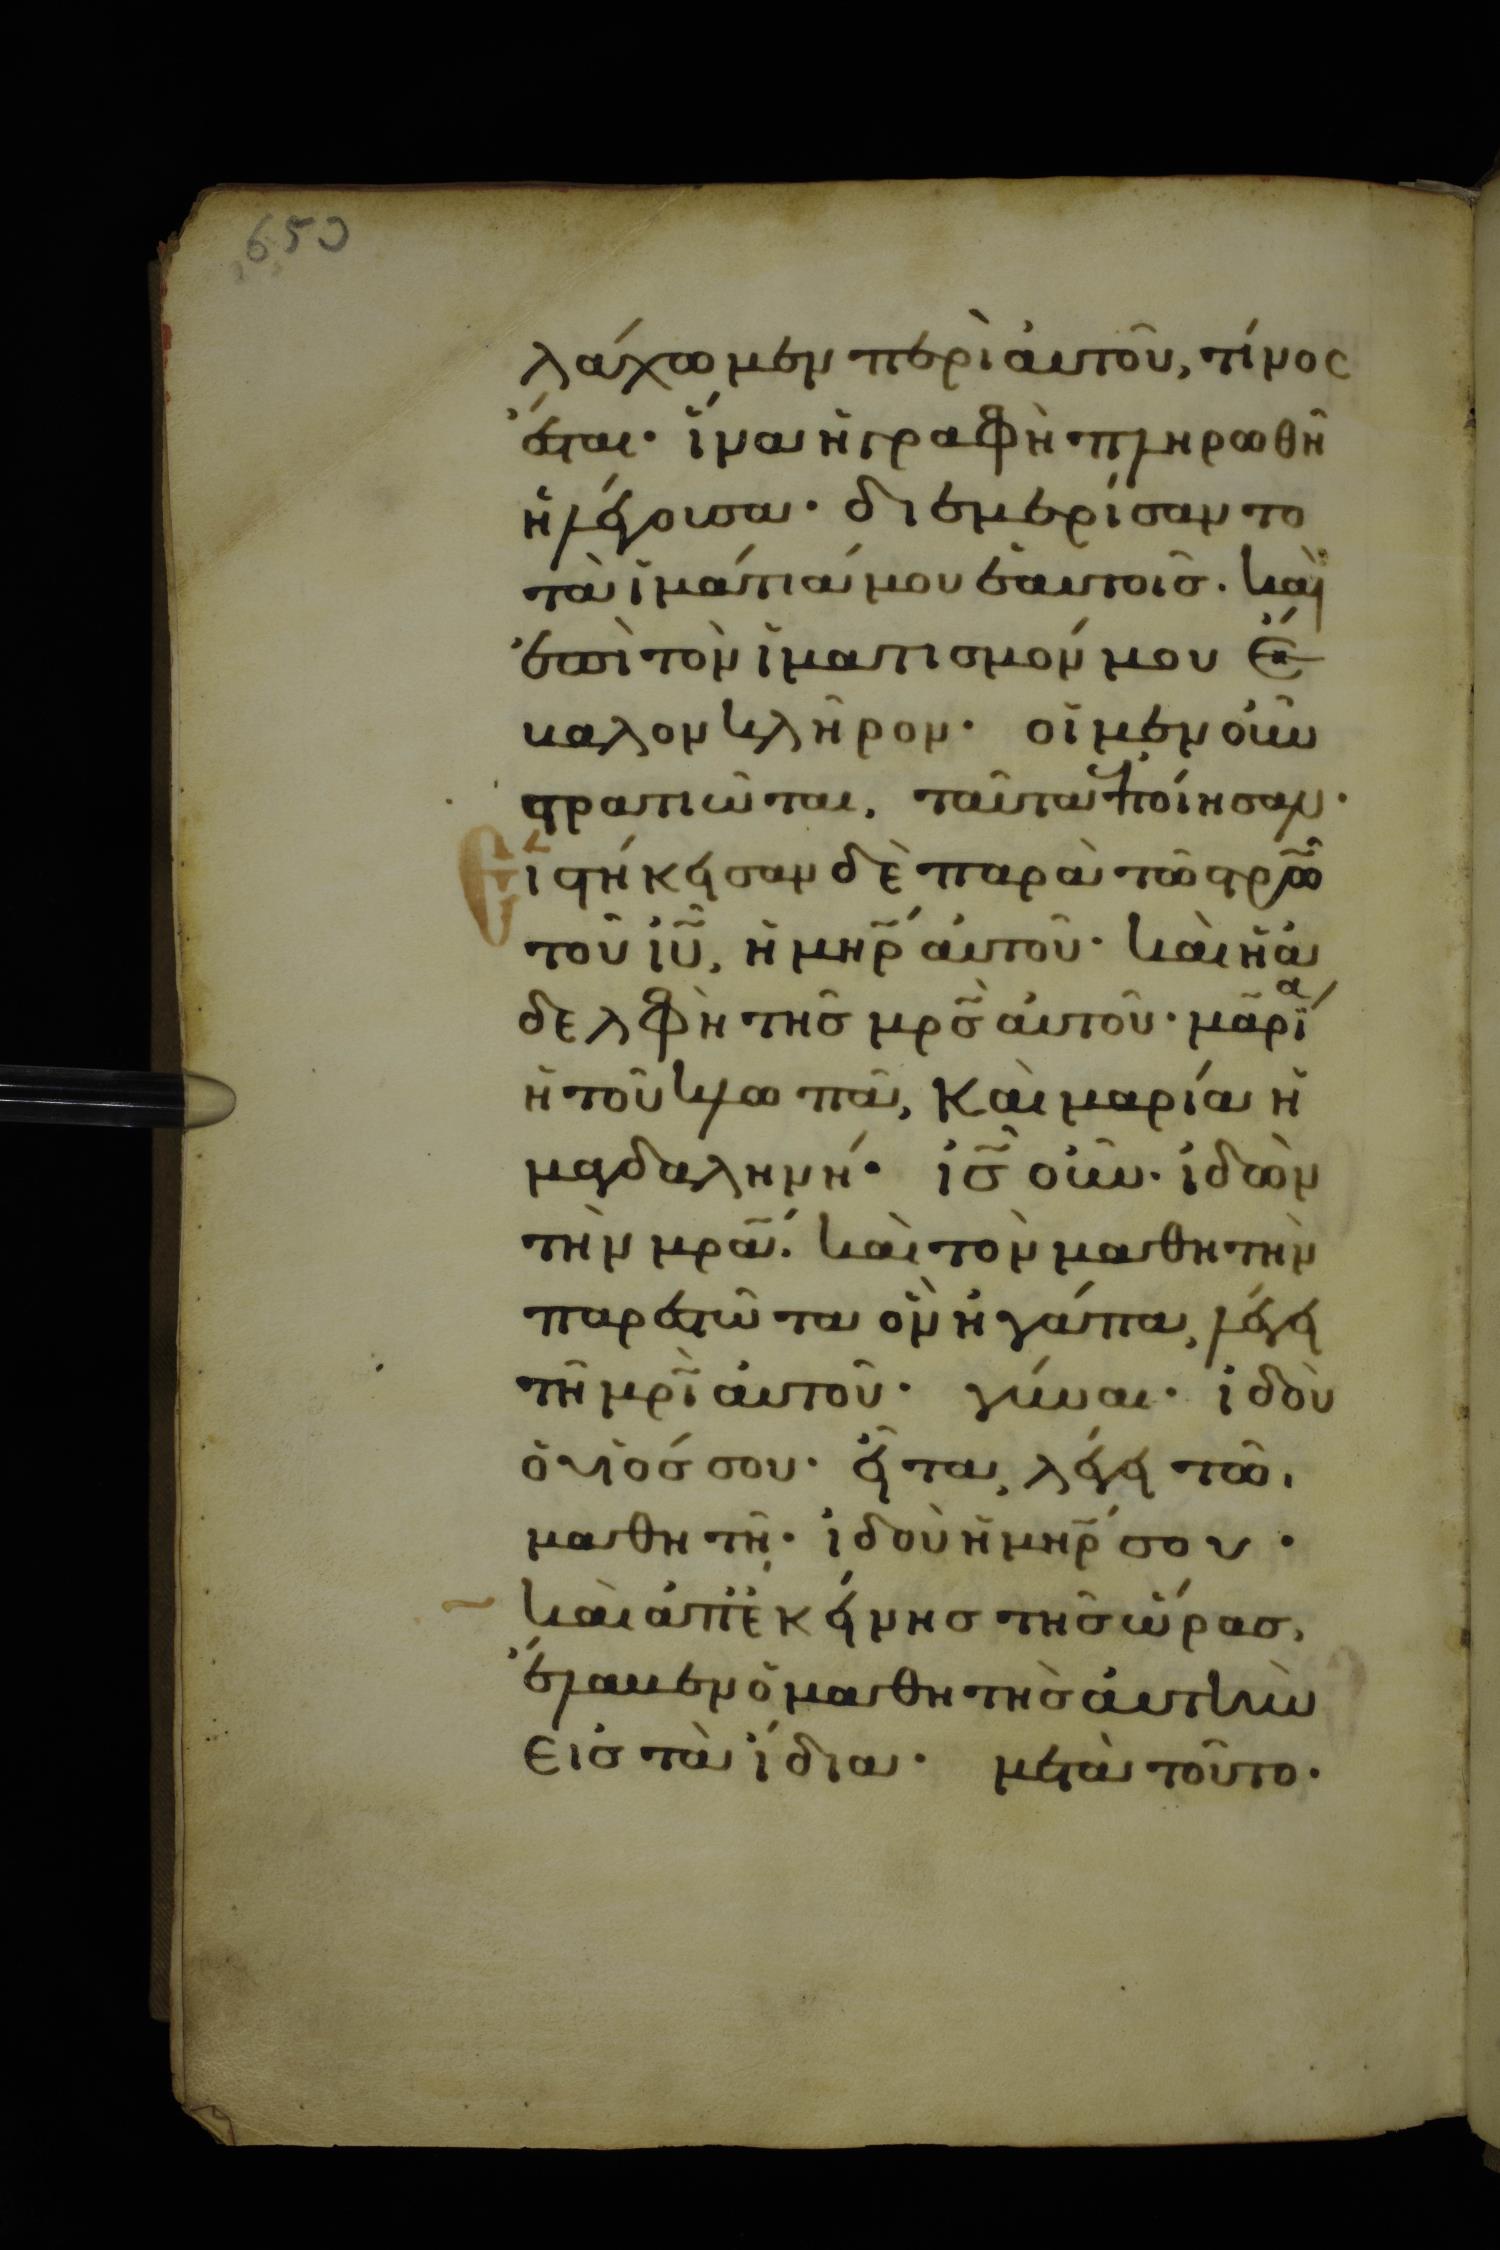 650
λάχωμεν περὶ ἀυτοῦ, τίνος
ἔσται· ἵνα ἡ γραφὴ πληρωθῆ
ἡ λέγουσα· διεμερίσαντο
τὰ ἱμάτιά μου ἑαυτοῖσ. καὶ
ἐπὶ τὸν ἱματισμόν μου ἔ
βαλον κλῆρον· οἱ μεν οὖν
στρατιῶται, ταῦτα ἐποίησαν·
Εἱστήκεισαν δὲ παρὰ τῶ στρῶ
τοῦ ἰυ̃, ἡ μηρ̃ ἀυτοῦ· καὶ ἡ ἀ
δελφὴ τῆσ μρσ̃ ἀυτοῦ· μαρία
ἡ τοῦ κλωπᾶ, καὶ μαρία ἡ
μαγδαληνή· ἰσ̃ οὖν· ἰδὼν
τὴν μρα̃· καὶ τὸν μαθητὴν
παρεστῶτα ὃν ἠγάπα, λέγει
τῆ μρῒ ἀυτοῦ· γύναι· ἰδοὺ
ὁ υἱόσ σου· εἶτα, λέγει τῶ,
μαθητῆ· ἰδοὺ ἡ μηρ̃ σου·
καὶ ἀπ ἐκείνησ τῆσ ὥρασ,
ἔλαβεν ὁ μαθητὴσ ἀυτὴν
εἰσ τὰ ἴδια· μετὰ τοῦτο·